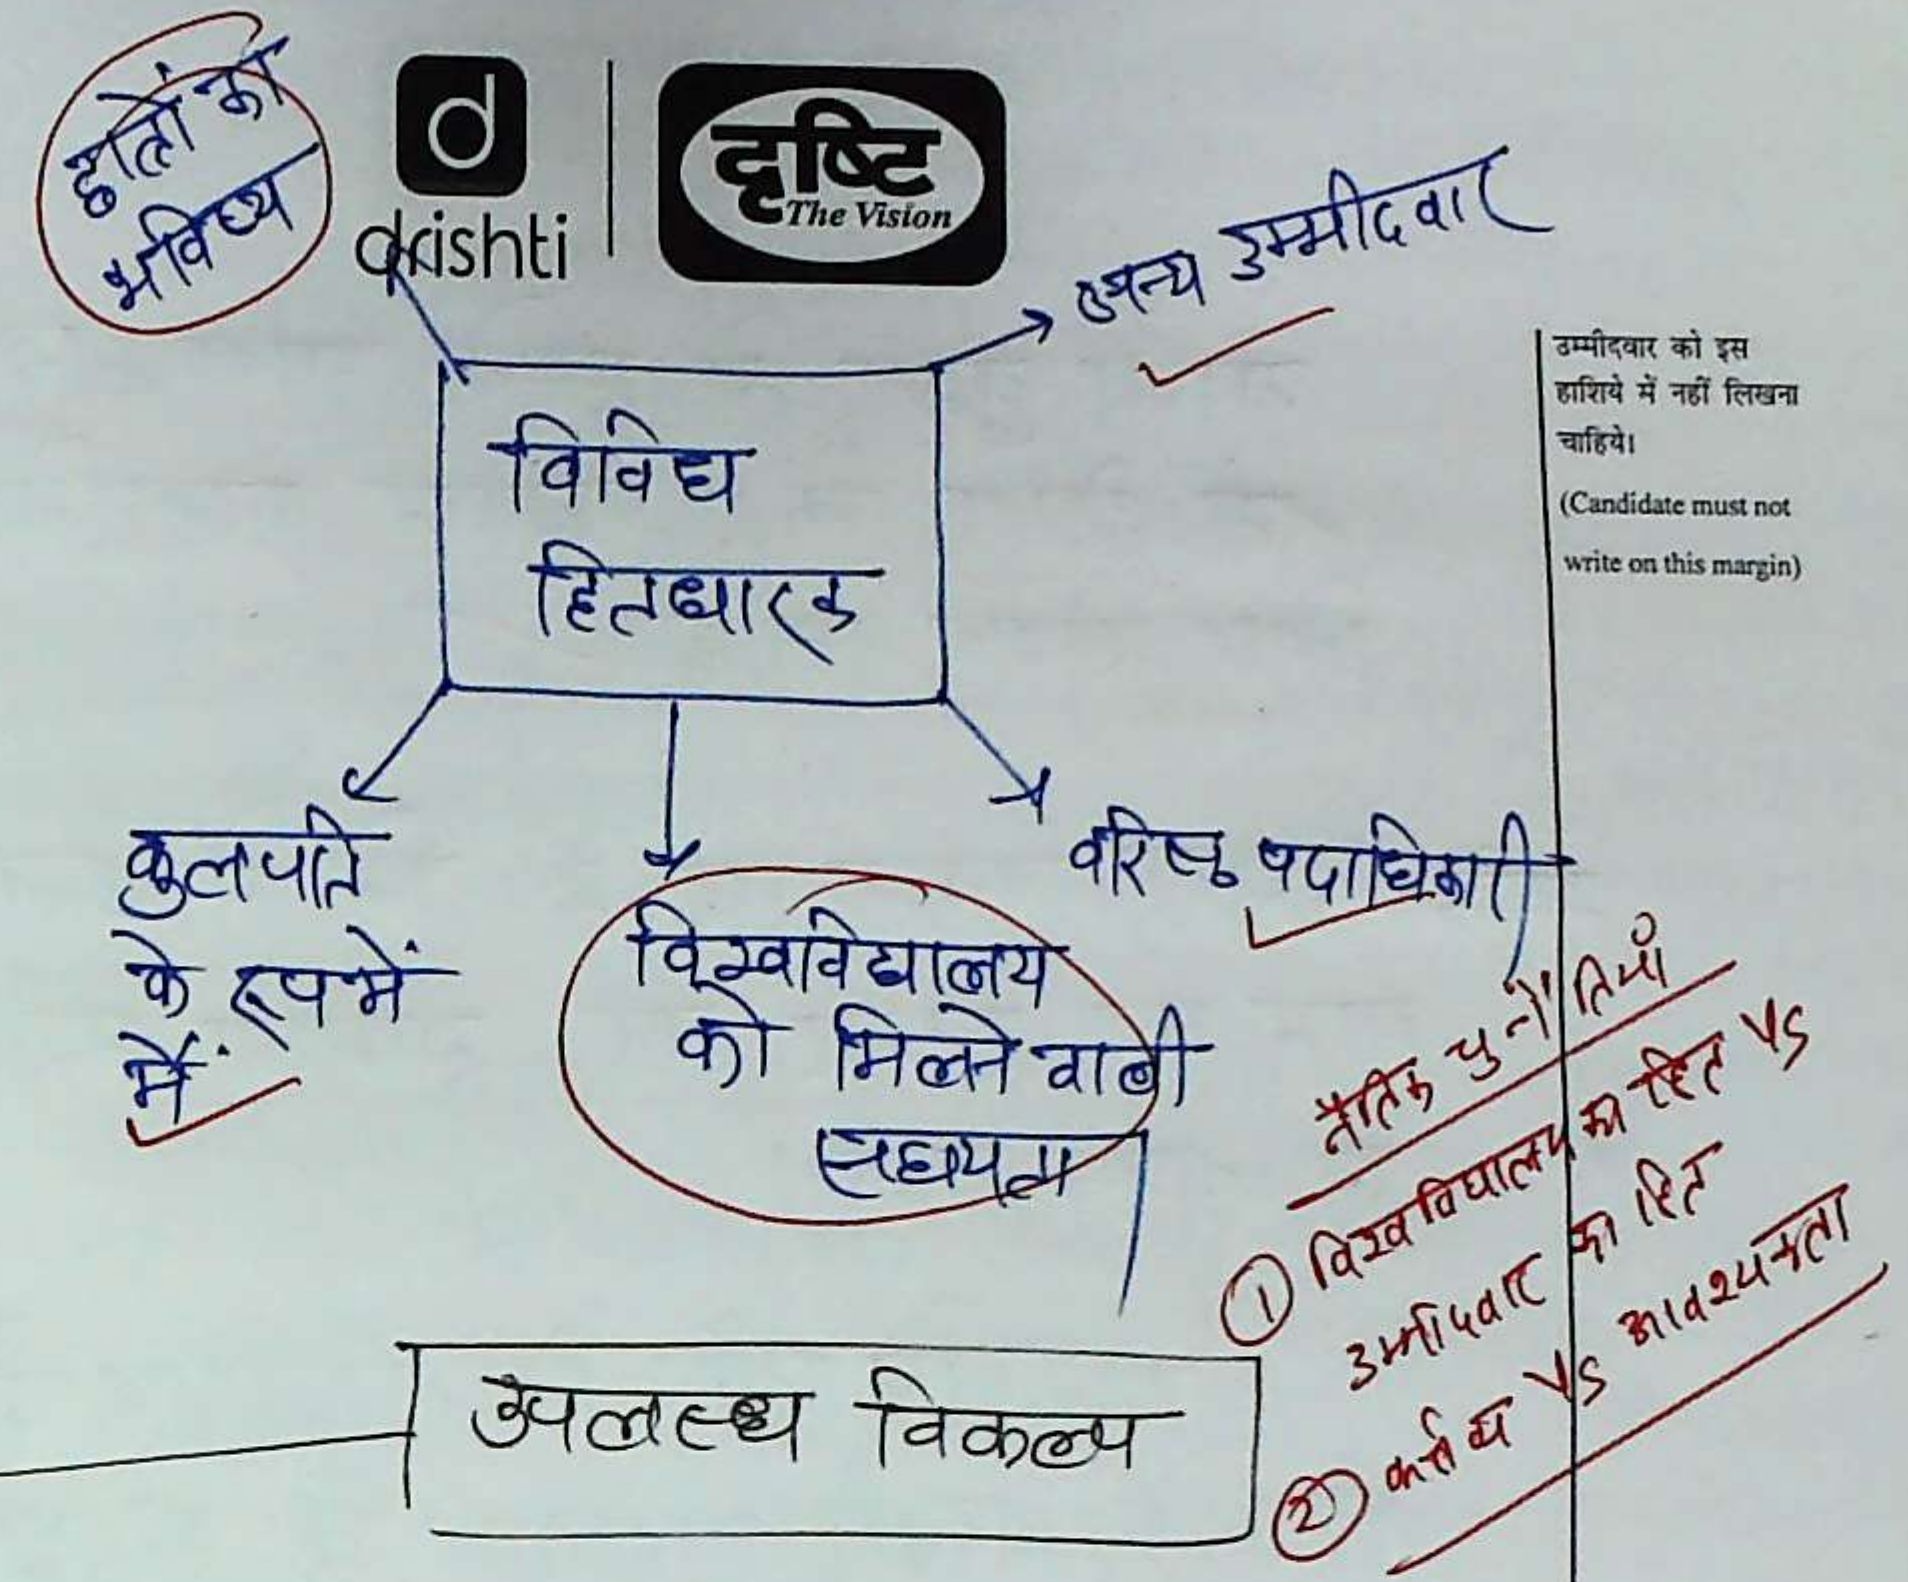 छात्रों का
भविष्य
d
drishti
दृष्टि
The Vision
अन्य उम्मीदवार
उम्मीदवार को इस
हाशिये में नहीं लिखना
चाहिये।
(Candidate must not
write on this margin)
विविध
हितधारक
कुलपति
के रूप में
मैं
विश्वविद्यालय
को मिलने वाली
सहायता
वरिष्ठ पदाधिकारी
नैतिक चुनौतियाँ
① विश्वविद्यालय का हित VS
उम्मीदवार का हित
② कर्त्तव्य VS आवश्यकता
उपलब्ध विकल्प